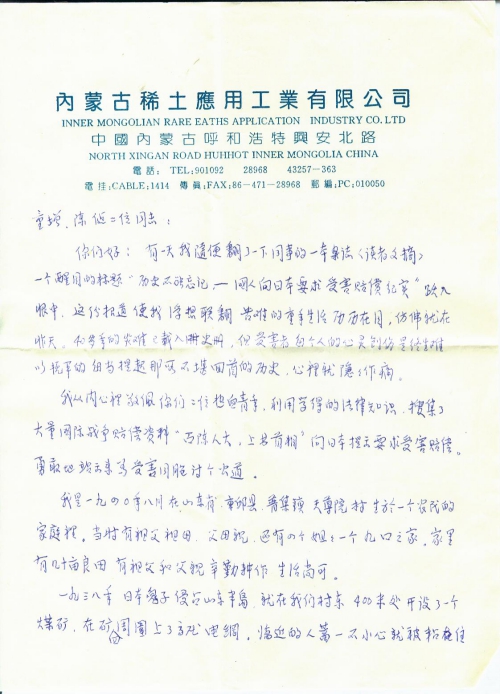 內蒙古稀土應用工業有限公司
INNER MONGOLIAN RARE EATHS APPLICATION INDUSTRY CO. LTD
中國內蒙古呼和浩特興安北路
NORTH XINGAN ROAD HUHHOT INNER MONGOLIA CHINA
電話: TEL;901092 28968 43257—363
電掛;CABLE;1414 傳眞;FAX;86—471—28968 郵編;PC;010050
童增、陈 二位同志:
你们好: 有一天我随便翻了一下同事的一本杂志《读者文摘》
一个醒目的标题"历史不能忘记——国人向日本要求受害赔偿纪实"跃入
眼中、这份报道使我浮想联翩 苦难的童年生活历历在目,仿佛就在
昨天。 的灾难已载入 史册,但受害者 个人的心灵创伤是终生难
以 每当提起那不堪回首的历史、心裡就隐隐作痛。
我从内心裡敬佩你们二位热血青年,利用学得的法律知识,搜集了
大量国际战争赔偿资料"万 人大,上书首相"向日本提出要求受害赔偿。
勇敢地站出来为受害同胞讨个公道。
我是一九四0年八月在山东省章邱县、普集镇 天尊院村 生於一个农民的
家庭裡。当时有祖父祖母、父母亲、还有四个姐々一个九口之家。家里
有几十亩良田 有祖父和父亲辛勤耕作 生活尚可。
一九三八年 日本鬼子侵占山东半岛,就在我们村东400米处开设了一个
煤矿,在矿的周围上了高压电網。临近的人萬一不小心就被粘 住